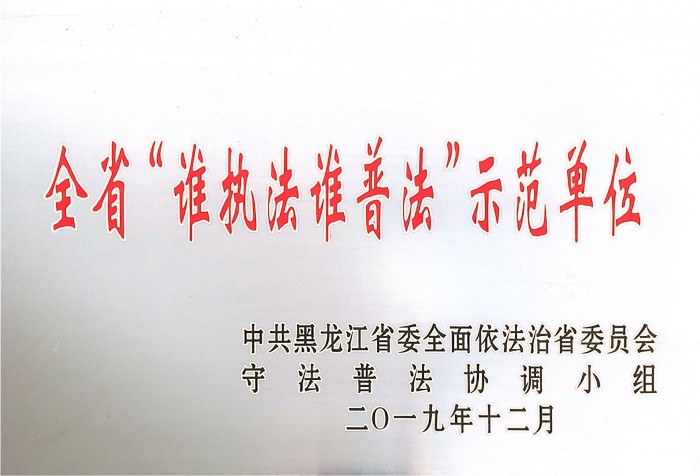 全省“谁执法谁普法”示范单位
中共黑龙江省委全面依法治省委员会
守法普法协调小组
二〇一九年十二月